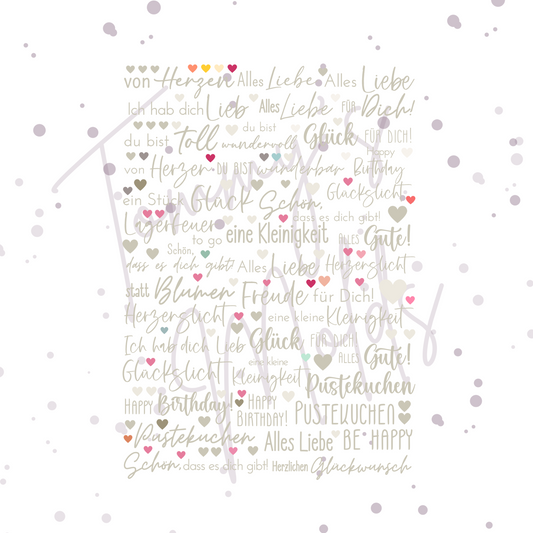 von Herzen Alles Liebe Alles Liebe
Ich hab dich Lieb Alles Liebe FÜR Dich!
du bist Toll du bist wundervoll Glück FÜR DICH!
von Herzen DU BIST wunderbar Happy Birthday
ein Stück Glück Schön, dass es dich gibt! Glückslicht
Lagerfeuer to go eine Kleinigkeit ALLES Gute!
Schön, dass es dich gibt! Alles Liebe Herzenslicht
statt Blumen Freude für Dich!
Herzenslicht eine kleine Kleinigkeit
Ich hab dich Lieb Glück FÜR DICH! ALLES Gute!
Glückslicht eine kleine Kleinigkeit Pustekuchen
HAPPY Birthday! HAPPY BIRTHDAY! PUSTEKUCHEN
Pustekuchen Alles Liebe BE HAPPY
Schön, dass es dich gibt! Herzlichen Glückwunsch